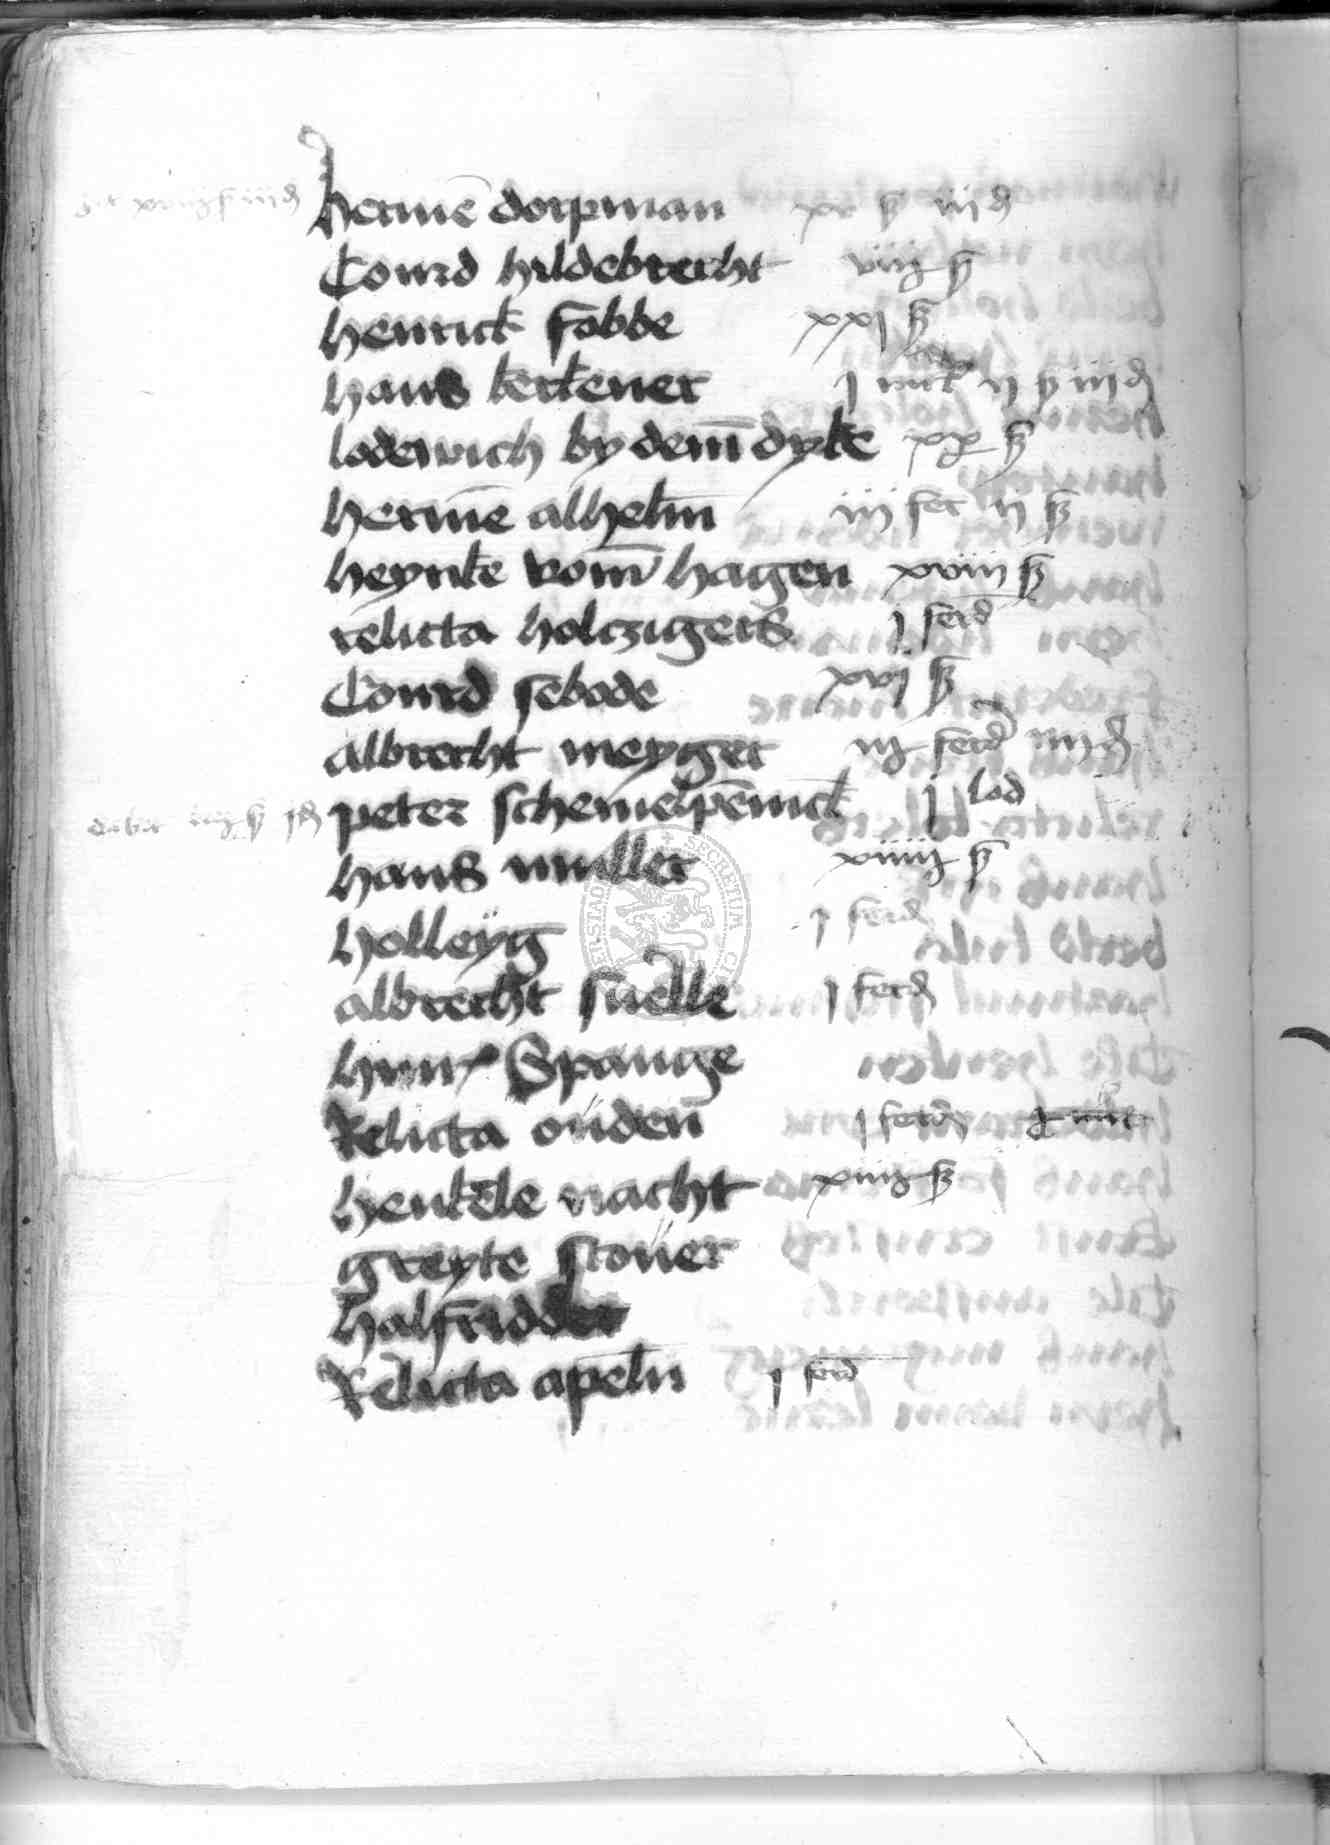 hermē dorpman xv ß iiij ₰
Courd hildebrecht viij ß
henrick fobbe xxj ß
hans kerkener j mrk ij ß iiij ₰
lodewich by dem̄ dyke xx ß
hermē alhelm̄ iij fer ij ß
heynke vom̄ hagen xviij ß
relicta holczigers j ferd
Courd sebode xvj ß
albrecht meyger iij ferd iiij ₰
dabit iiij ß j ₰ peter schemelpēnick j lod
hans muller xiiij ß
holleyg j ferd
albrecht snelle j ferd
hinr Spange
Relicta ouden̄ j ferd
henkele nacht xiiij ß
greyte stover
halfridder
Relicta apelm̄ j ferd